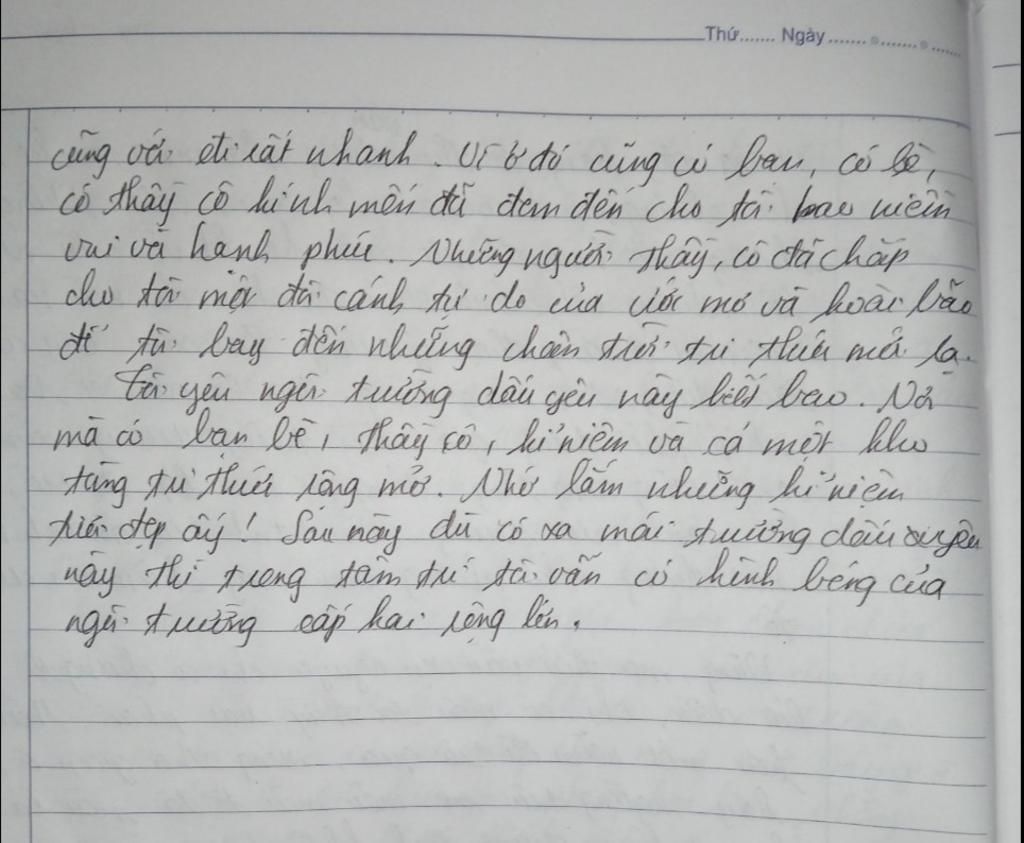 Thứ....... Ngày.................
cũng với đi rất nhanh. Vì ở đó cũng có bạn, có bè,
có thầy cô kính mến đã đem đến cho tôi bao niềm
vui và hạnh phúc. Những người thầy, cô đã chắp
cho tôi một đôi cánh tự do của ước mơ và hoài bão
để tôi bay đến những chân trời tri thức mới lạ.
Tôi yêu ngôi trường dấu yêu này biết bao. Nơi
mà có bạn bè, thầy cô, kỉ niệm và cả một kho
tàng tri thức rộng mở. Nhớ lắm những kỉ niệm
tươi đẹp ấy! Sau này dù có xa mái trường dấu yêu
này thì trong tâm trí tôi vẫn có hình bóng của
ngôi trường cấp hai rộng lớn.